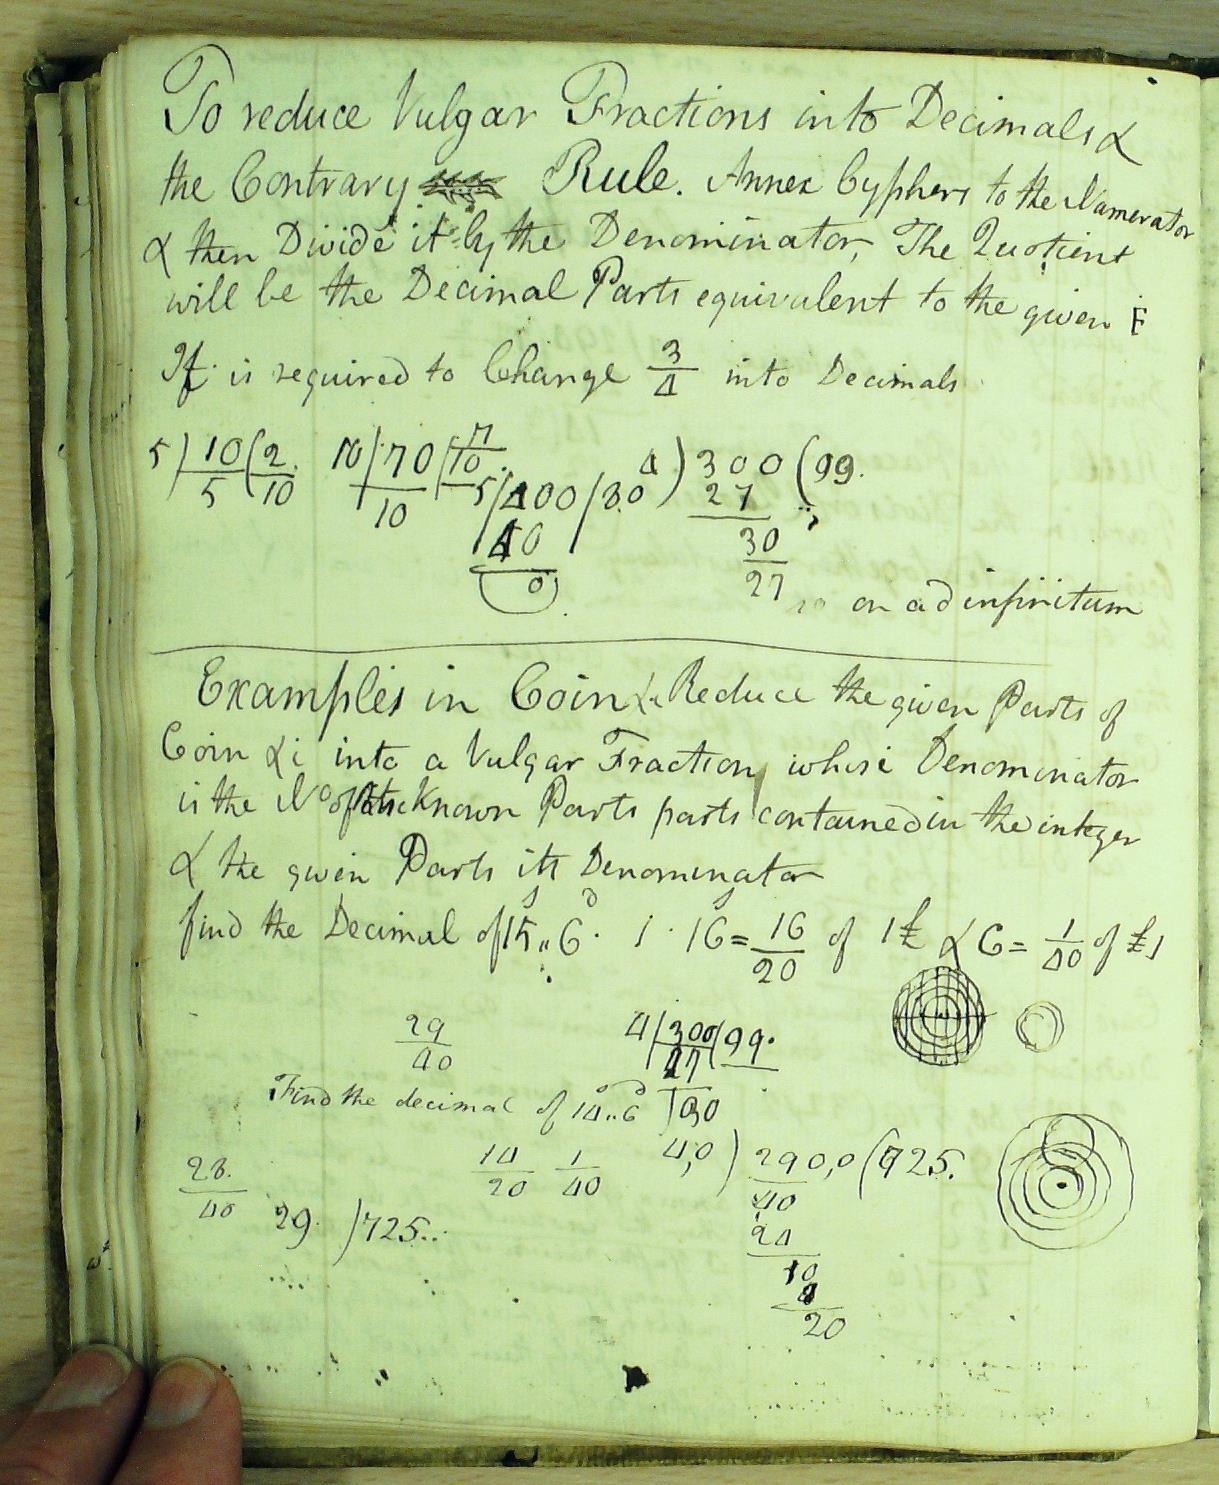 To reduce Vulgar Fractions into Decimals &
the Contrary Rule. Annex Cyphers to the Numerator
& then Divide it by the Denominator, The Quotient
will be the Decimal Parts equivalent to the given F
If is required to Change 3/4 into Decimals
5)10(2/10 10/70/7/10 4)300(99.
5 10 5/400/80 27
40 30
0 27
on ad infinitum
Examples in Coin &c Reduce the given Parts of
Coin &c into a Vulgar Fraction, whose Denominator
is the No of the Known Parts parts contained in the integer
& the given Parts its Denominator
s d s
find the Decimal of 15,,6. 1. 16=16/20 of 1£ & 6=1/40 of £1
29/40 4/300/99.
27
Find the decimal of 14..6 30
28./40 14/20 1/40 4,0)290,0(725.
29 )725.. 40
24
10
4
20